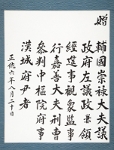 贈
輔國崇祿大夫議
政府左議政兼領
經筵事觀象監事
行嘉善大夫刑曹
參判中樞院府事
漢城府尹者
正德六年八月三十日